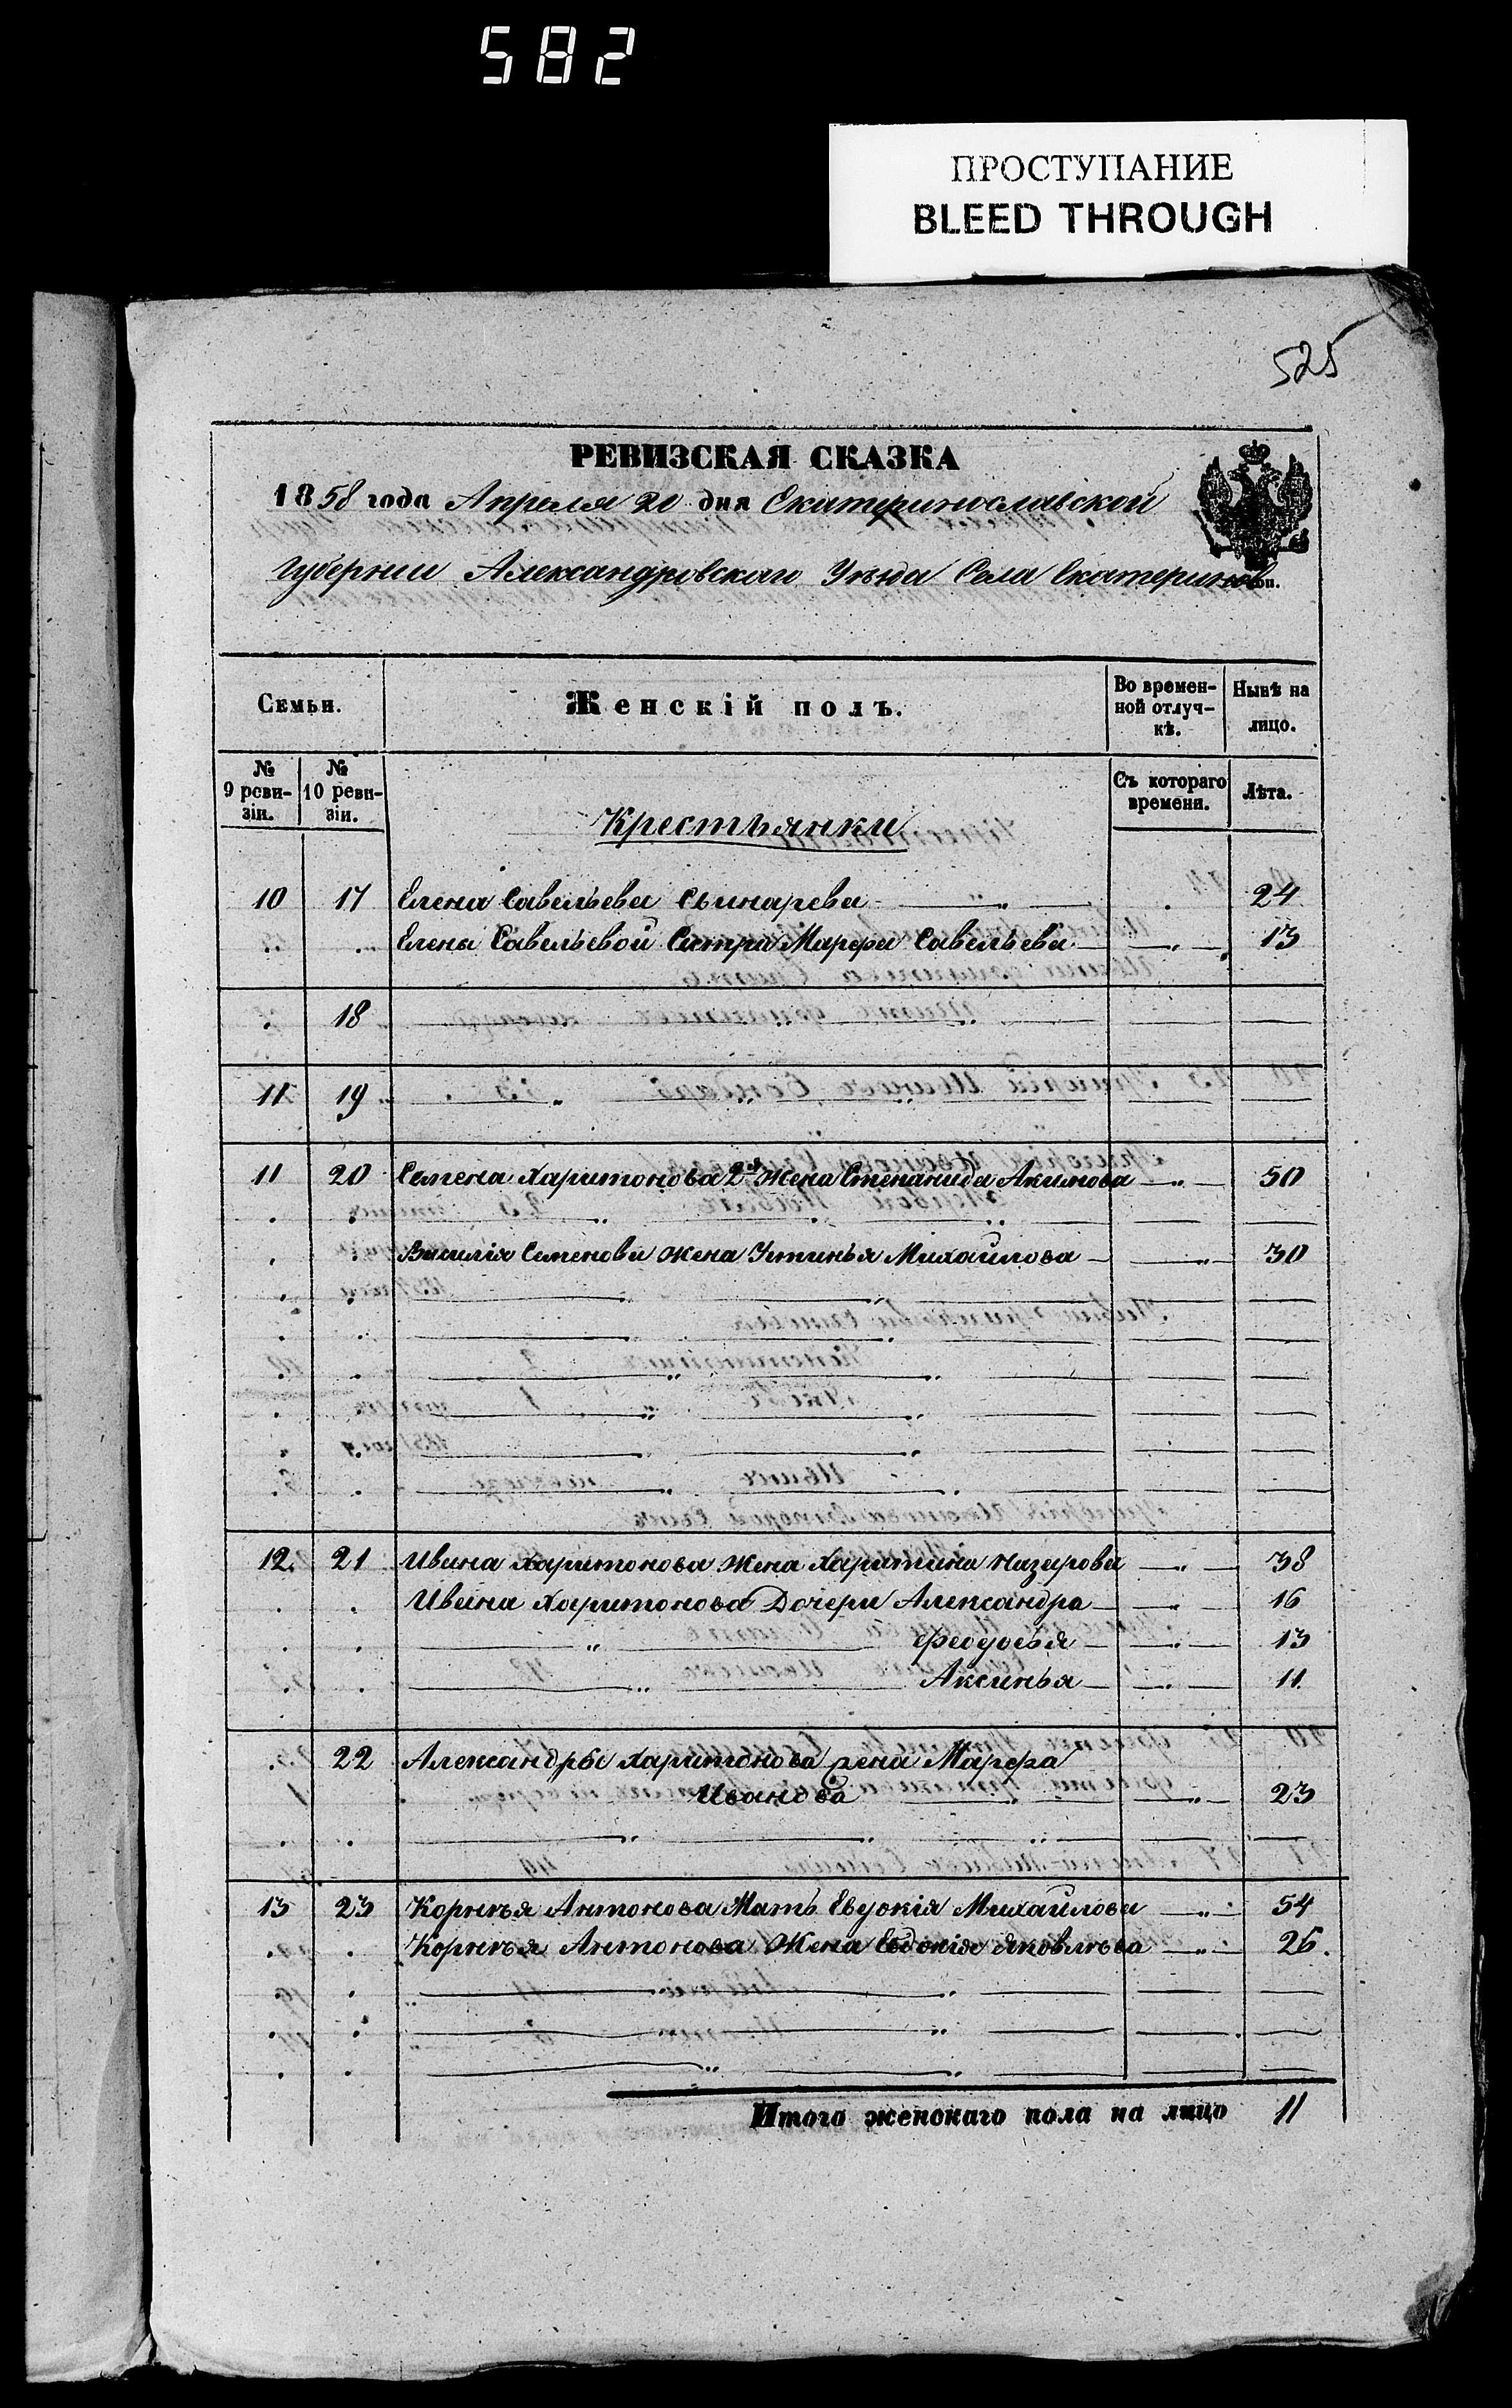 582
ПРОСТУПАНИЕ
BLEED THROUGH
525
РЕВИЗСКАЯ СКАЗКА
1858 года Апреля 20 дня Екатеринославской
Губернии Александровскаго Уѣзда Села Екатеринов
коп.
Семьи.
Женскій полъ.
Во времен-
ной отлуч-
кѣ.
Нынѣ на
лицо.
№
9 реви-
зіи.
№
10 реви-
зіи.
Съ котораго
времени.
Лѣта.
Крестьянки
10 17 Елена Савельева 24
Елены Савельевой Сестра Марфа Савельева 13
18
11 19
11 20 Семена Харитонова 2я жена Степанида Акимова 50
Василія Семенова жена Устинья Михайлова 30
12. 21 Ивана Харитонова жена Харитина Назарова 38
Ивана Харитонова Дочери Александра 16
Феодосья 13
Аксинья 11
22 Александры Харитонова жена Марфа
Иванова 23
13 23 Корнѣя Антонова Мать Евдокія Михайлова 54
Корнѣя Антонова Жена Евдокія Яковлѣва 26.
Итого женскаго пола на лицо 11